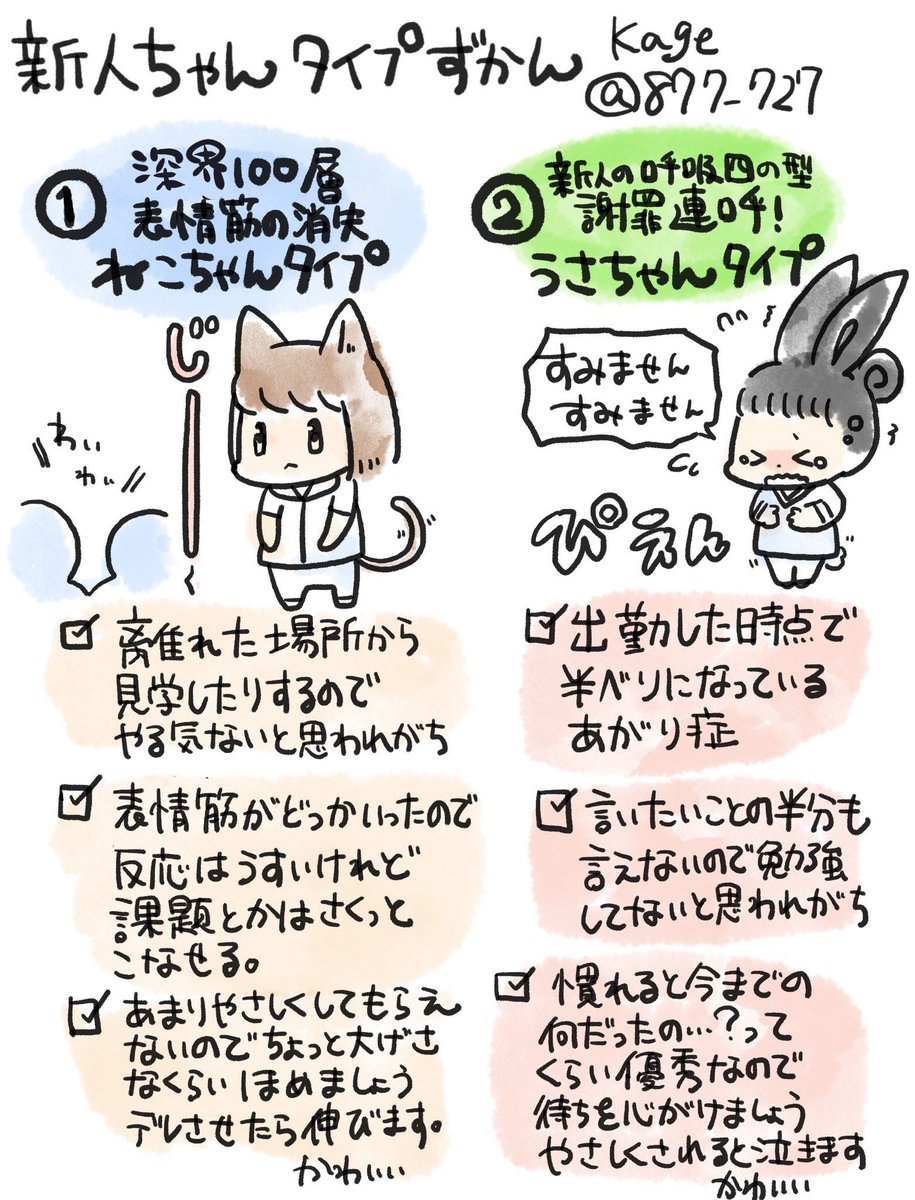 新人ちゃん タイプずかん
Kage
@877_727
①
深界100層
表情筋の消失
ねこちゃんタイプ
じ
わい
わい
☑ 離れた場所から
見学したりするので
やる気ないと思われがち
☑ 表情筋がどっかいったので
反応はうすいけれど
課題とかはさくっと
こなせる。
☑ あまりやさしくしてもらえ
ないのでちょっと大げさ
なくらいほめましょう
デレさせたら伸びます。
かわいい
②
新人の呼吸四の型
謝罪連呼!
うさちゃんタイプ
すみません
すみません
ぴえん
☑ 出勤した時点で
半べソになっている
あがり症
☑ 言いたいことの半分も
言えないので勉強
してないと思われがち
☑ 慣れると今までの
何だったの…?って
くらい優秀なので
待ちを心がけましょう
やさしくされると泣きます
かわいい